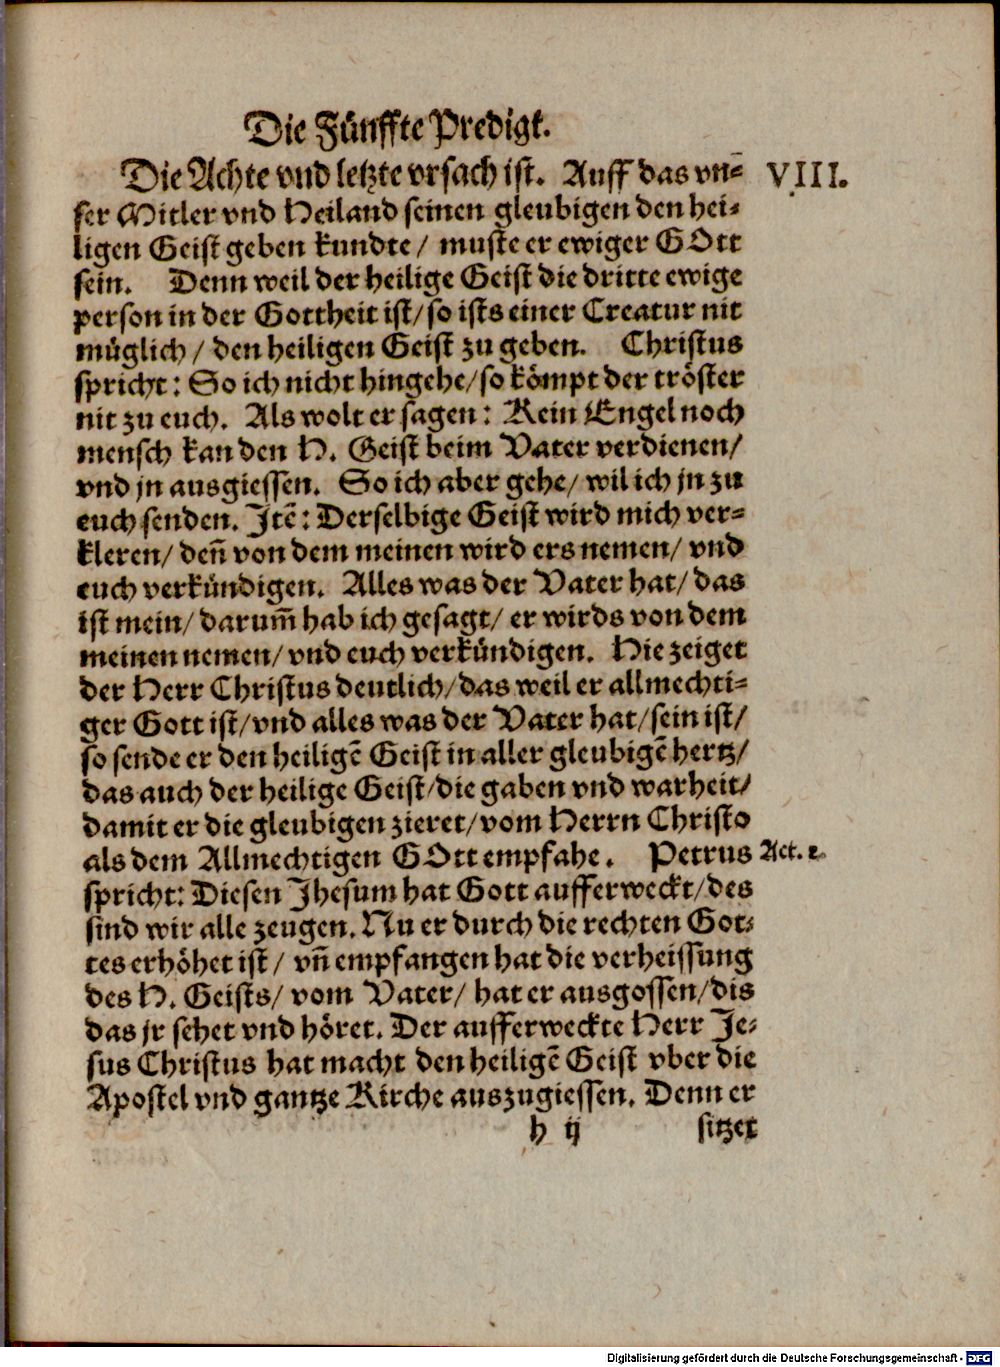 Die Fünffte Predigt.
Die Achte vnd letzte vrsach ist. Auff das vn= VIII.
ser Mitler vnd Heiland seinen gleubigen den hei=
ligen Geist geben kundte / muste er ewiger GOtt
sein. Denn weil der heilige Geist die dritte ewige
person in der Gottheit ist / so ists einer Creatur nit
müglich / den heiligen Geist zu geben. Christus
spricht: So ich nicht hingehe / so kömpt der tröster
nit zu euch. Als wolt er sagen: Kein Engel noch
mensch kan den H. Geist beim Vater verdienen /
vnd jn ausgiessen. So ich aber gehe / wil ich jn zu
euch senden. Jtē: Derselbige Geist wird mich ver=
kleren / deñ von dem meinen wird ers nemen / vnd
euch verkündigen. Alles was der Vater hat / das
ist mein / darum̃ hab ich gesagt / er wirds von dem
meinen nemen / vnd euch verkündigen. Hie zeiget
der Herr Christus deutlich / das weil er allmechti=
ger Gott ist / vnd alles was der Vater hat / sein ist /
so sende er den heiligē Geist in aller gleubigē hertz /
das auch der heilige Geist / die gaben vnd warheit /
damit er die gleubigen zieret / vom Herrn Christo
als dem Allmechtigen GOtt empfahe. Petrus Act. 2.
spricht: Diesen Jhesum hat Gott aufferweckt / des
sind wir alle zeugen. Nu er durch die rechten Got=
tes erhöhet ist / vñ empfangen hat die verheissung
des H. Geists / vom Vater / hat er ausgossen / dis
das jr sehet vnd höret. Der aufferweckte Herr Je=
sus Christus hat macht den heiligē Geist vber die
Apostel vnd gantze Kirche auszugiessen. Denn er
h ij sitzet
Digitalisierung gefördert durch die Deutsche Forschungsgemeinschaft - DFG